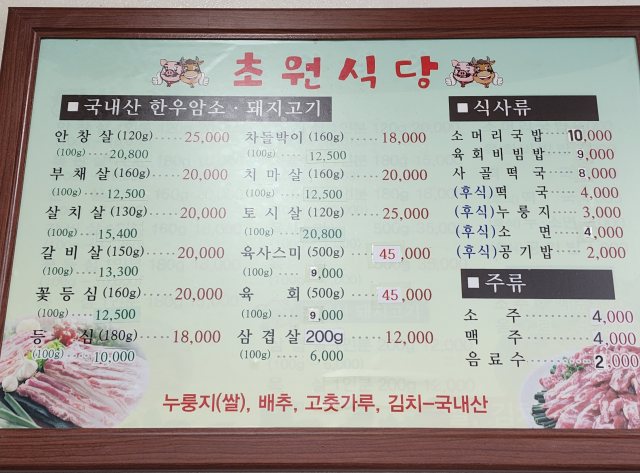 초원식당
■ 국내산 한우암소·돼지고기
안창살 (120g) ····· 25,000
(100g) ···· 20,800
부채살 (160g) ····· 20,000
(100g) ···· 12,500
살치살 (130g) ····· 20,000
(100g) ···· 15,400
갈비살 (150g) ····· 20,000
(100g) ···· 13,300
꽃등심 (160g) ····· 20,000
(100g) ···· 12,500
등심 (180g) ····· 18,000
(100g) ···· 10,000
차돌박이 (160g) ····· 18,000
(100g) ···· 12,500
치마살 (160g) ····· 20,000
(100g) ···· 12,500
토시살 (120g) ····· 25,000
(100g) ···· 20,800
육사스미 (500g) ···· 45,000
(100g) ···· 9,000
육회 (500g) ···· 45,000
(100g) ···· 9,000
삼겹살 200g ····· 12,000
(100g) ···· 6,000
■ 식사류
소머리국밥 ··· 10,000
육회비빔밥 ··· 9,000
사골떡국 ···· 8,000
(후식)떡국 ···· 4,000
(후식)누룽지 ···· 3,000
(후식)소면 ···· 4,000
(후식)공기밥 ···· 2,000
■ 주류
소주 ········ 4,000
맥주 ········ 4,000
음료수 ········ 2,000
누룽지(쌀), 배추, 고춧가루, 김치-국내산